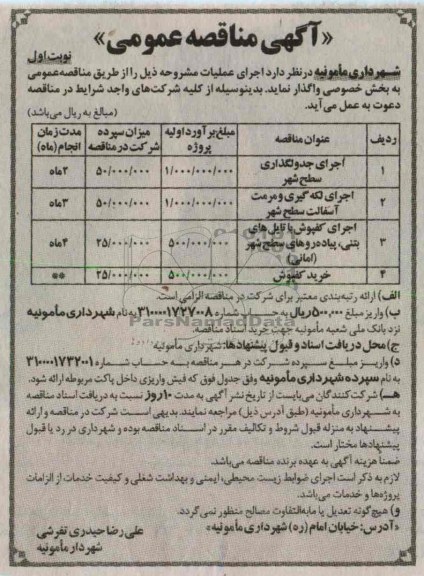 «آگهی مناقصه عمومی»
نوبت اول
شهرداری مأمونیه در نظر دارد اجرای عملیات مشروحه ذیل را از طریق مناقصه عمومی
به بخش خصوصی واگذار نماید. بدینوسیله از کلیه شرکت‌های واجد شرایط در مناقصه
دعوت به عمل می‌آید.
(مبالغ به ریال می‌باشد)
ردیف عنوان مناقصه مبلغ برآورد اولیه پروژه میزان سپرده شرکت در مناقصه مدت زمان انجام (ماه)
۱ اجرای جدولگذاری سطح شهر ۱/۰۰۰/۰۰۰/۰۰۰ ۵۰/۰۰۰/۰۰۰ ۲ماه
۲ اجرای لکه گیری و مرمت آسفالت سطح شهر ۱/۰۰۰/۰۰۰/۰۰۰ ۵۰/۰۰۰/۰۰۰ ۳ماه
۳ اجرای کفپوش با تایل های بتنی، پیاده‌روهای سطح شهر (امانی) ۵۰۰/۰۰۰/۰۰۰ ۲۵/۰۰۰/۰۰۰ ۴ماه
۴ خرید کفپوش ۵۰۰/۰۰۰/۰۰۰ ۲۵/۰۰۰/۰۰۰ **
الف) ارائه رتبه‌بندی معتبر برای شرکت در مناقصه الزامی است.
ب) واریز مبلغ ۵۰۰,۰۰۰ ریال به حساب شماره ۳۱۰۰۰۰۱۷۲۷۰۰۸ به نام شهرداری مأمونیه
نزد بانک ملی شعبه مأمونیه جهت خرید اسناد مناقصه.
ج) محل دریافت اسناد و قبول پیشنهادها: شهرداری مأمونیه
د) واریز مبلغ سپرده شرکت در هر مناقصه به حساب شماره ۳۱۰۰۰۰۱۷۳۲۰۰۱
به نام سپرده شهرداری مأمونیه وفق جدول فوق که فیش واریزی داخل پاکت مربوطه ارائه شود.
هـ) شرکت‌کنندگان می‌بایست از تاریخ نشر آگهی به مدت ۱۰ روز نسبت به دریافت اسناد مناقصه
به شهرداری مأمونیه (طبق آدرس ذیل) مراجعه نمایند. بدیهی است شرکت در مناقصه و ارائه
پیشنهاد به منزله قبول شروط و تکالیف مقرر در اسناد مناقصه بوده و شهرداری در رد یا قبول
پیشنهادها مختار است.
ضمناً هزینه آگهی به عهده برنده مناقصه می‌باشد.
لازم به ذکر است اجرای ضوابط زیست محیطی، ایمنی و بهداشت شغلی و کیفیت خدمات از الزامات
پروژه‌ها و خدمات می‌باشد.
و) هیچگونه تعدیل یا مابه‌التفاوت مصالح منظور نمی‌گردد.
«آدرس: خیابان امام (ره) شهرداری مأمونیه»
علی رضا حیدری تفرشی
شهردار مأمونیه
ParsNamadData